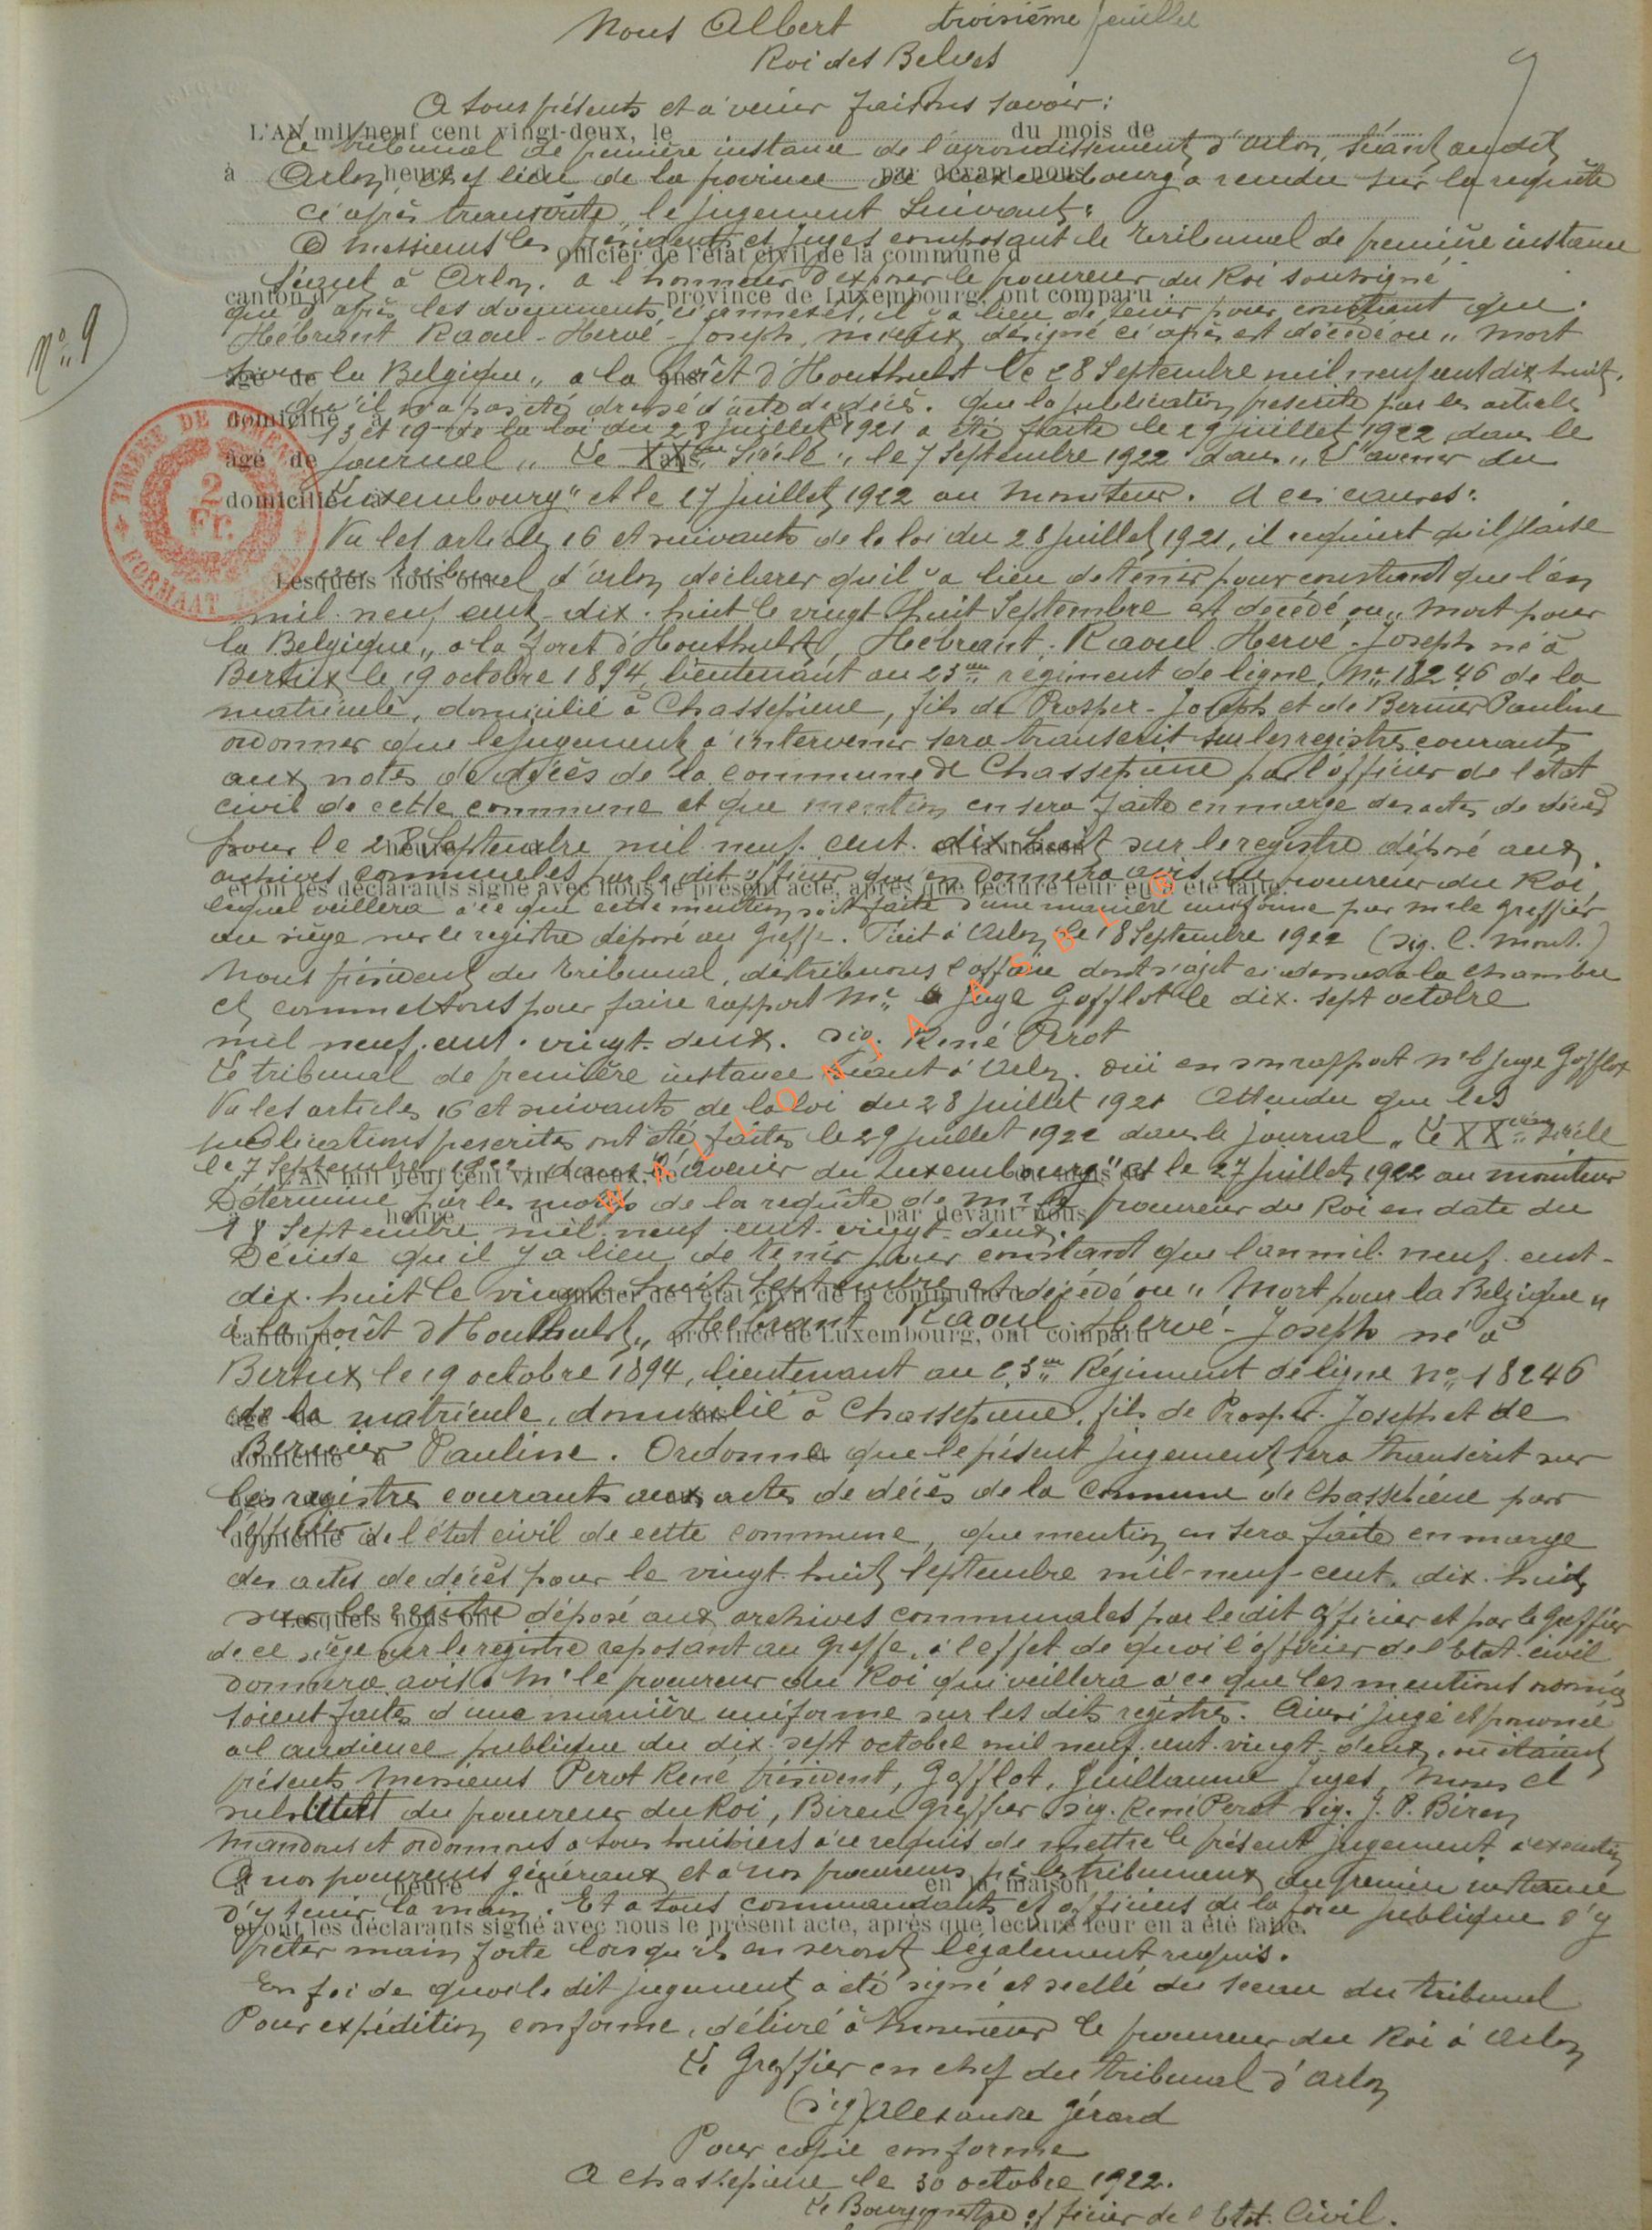 troisième feuillet
Nous Albert
Roi des Belges
9
A tous présents et à venir faisons savoir :
L'AN mil neuf cent vingt-deux, le du mois de
Le tribunal de première instance de l'arrondissement d'Arlon, séant au dit
à heure d par devant nous
Arlon, chef lieu de la province de Luxembourg a rendu sur la requête
ci après transcrite, le jugement suivant :
A messieurs les présidents et juges composant le Tribunal de première instance
Officier de l'état civil de la commune d
séant à Arlon. a l'honneur d'exposer le procureur du Roi soussigné
canton d province de Luxembourg, ont comparu :
que d'après les documents ci annexés, il y a lieu de tenir pour constant que
Nº 9
Hébrant Raoul-Hervé-Joseph, mieux désigné ci après est décédé ou " mort
âgé de ans
pour la Belgique " a la forêt d'Houthulst le 28 Septembre mil neuf cent dix huit,
qu'il n'a pas été dressé d'acte de décès. que la publication prescrite par les articles
domicilié à et
13 et 19 de la loi du 28 juillet 1921 a été faite le 29 juillet 1922 dans le
âgé de ans
journal " Le XXme Siècle ", le 7 Septembre 1922 dans " L'avenir du
domicilié à
Luxembourg " et le 27 juillet 1922 au moniteur. A ces causes :
TIMBRE DE DIMENSION
2 Fr.
FORMAAT ZEGEL
Vu les articles 16 et suivants de la loi du 28 juillet 1921, il requiert qu'il plaise
Lesquels nous ont
au tribunal d'arlon déclarer qu'il y a lieu de tenir pour constant que l'an
mil. neuf cent dix. huit le vingt huit Septembre est décédé ou " mort pour
la Belgique " a la foret d'Houthulst, Hébrant. Raoul. Hervé. Joseph né à
Bertrix le 19 octobre 1894, lieutenant au 23me régiment de ligne, Nº 18246 de la
matricule, domicilié à Chassepierre, fils de Prosper-Joseph et de Bernier Pauline
ordonner que le jugement à intervenir sera transcrit sur les registres courants
aux notes de décès de la commune de Chassepierre par l'officier de l'état
civil de cette commune et que mention en sera faite en marge des actes de décès
heure en la maison
pour le 28 Septembre mil neuf. cent. dix-huit sur le registre déposé aux
archives communales par le dit officier qui en donnera avis au procureur du Roi,
et ont les déclarants signé avec nous le présent acte, après que lecture leur en a été faite.
lequel veillera à ce que cette mention soit faite d'une manière uniforme par Mr le Greffier
au siège sur le registre déposé au Greffe. Fait à Arlon, le 18 Septembre 1922
Nous président du tribunal, distribuons l'affaire dont s'agit ci dessus a la chambre
et commettons pour faire rapport Mr le juge Gofflot le dix. sept octobre
mil neuf. cent. vingt. deux. sig. René Perot
Le tribunal de première instance séant à Arlon. ouï en son rapport Mr le juge Gofflot
Vu les articles 16 et suivants de la loi du 28 juillet 1921 Attendu que les
publications prescrites ont été faites le 29 juillet 1922 dans le journal " Le XXème Siècle
le 7 Septembre 1922 dans " L'avenir du Luxembourg " et le 27 juillet 1922 au moniteur
L'AN mil neuf cent vingt-deux, le du mois de
Déterminé par les motifs de la requête de Mr le procureur du Roi en date du
heure d par devant nous
18 Septembre mil. neuf. cent. vingt. deux.
Décide qu'il y a lieu de tenir pour constant que l'an mil. neuf. cent-
dix. huit le vingt huit Septembre est décédé ou " Mort pour la Belgique "
Officier de l'état civil de la commune d
à la forêt d'Houthulst " Hébrant Raoul Hervé-Joseph né à
canton d province de Luxembourg, ont comparu
Bertrix, le 19 octobre 1894, lieutenant au 23me Régiment de ligne Nº 18246
âgé de ans
de la matricule, domicilié à Chassepierre, fils de Prosper. Joseph et de
domicilié à
Bernier Pauline. Ordonne que le présent jugement sera transcrit sur
les registres courants aux actes de décès de la Commune de Chassepierre par
domicilié à
l'officier de l'état civil de cette commune, que mention en sera faite en marge
des actes de décès pour le vingt huit Septembre mil-neuf-cent. dix. huit
Lesquels nous ont
sur le registre déposé aux archives communales par le dit officier et par le Greffier
de ce siège sur le registre reposant au Greffe, à l'effet de quoi l'officier de l'Etat civil
donnera avis à Mr le procureur du Roi qui veillera à ce que les mentions
soient faites d'une manière uniforme sur les dits registres. Ainsi jugé et prononcé
a l'audience publique du dix. sept octobre mil neuf. cent. vingt. deux, où étaient
présents Messieurs Perot René, Président, Gofflot, Guillaume juges,
substitut du procureur du Roi, Biren greffier sig. René Perot sig. J. P. Biren
Mandons et ordonnons a tous huissiers à ce requis de mettre le présent jugement à exécution
A nos procureurs généraux et à nos procureurs près les tribunaux de première instance
à heure d en la maison
d'y tenir la main. Et a tous commandants et officiers de la force publique d'y
et ont les déclarants signé avec nous le présent acte, après que lecture leur en a été faite.
prêter main forte lorsqu'ils en seront légalement requis.
En foi de quoi le dit jugement a été signé et scellé du sceau du tribunal
Pour expédition conforme, délivré à Monsieur le procureur du Roi à Arlon
Le Greffier en chef du tribunal d'arlon
(sig) Alexandre Gérard
Pour copie conforme
A Chassepierre le 30 octobre 1922.
Le Bourgmestre officier de l'Etat. Civil.
WALLONIA ASBL ©